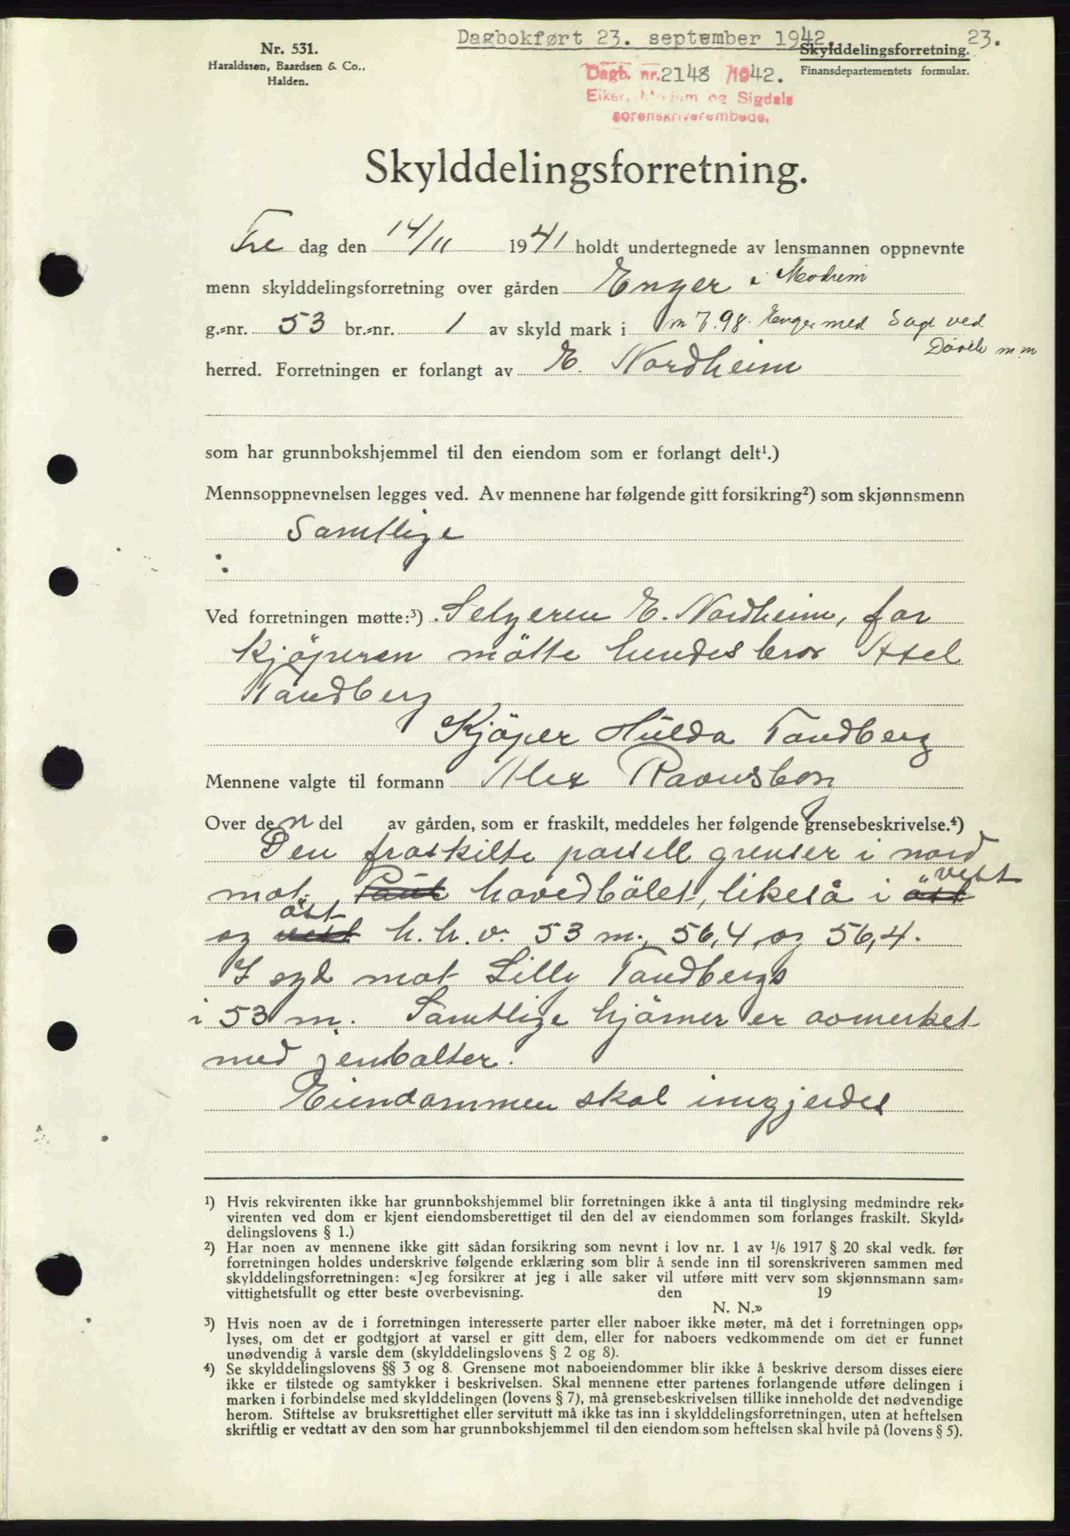 Dagbokført 23. september 1942.
23.
Nr. 531.
Haraldssøn, Baardsen & Co..
Halden.
Skylddelingsforretning.
Finansdepartementets formular.
Dagb. nr. 2148 /1942.
Eiker, Modum og Sigdals
sorenskriverembede.
Skylddelingsforretning.
Fre dag den 14/11 1941 holdt undertegnede av lensmannen oppnevnte
menn skylddelingsforretning over gården Enger i Modum
g.-nr. 53 br.-nr. 1 av skyld mark i m 7.98. Enger med Sagt ved
m.m
herred. Forretningen er forlangt av E. Nordheim
som har grunnbokshjemmel til den eiendom som er forlangt delt¹.)
Mennsoppnevnelsen legges ved. Av mennene har følgende gitt forsikring²) som skjønnsmenn
Samtlige
Ved forretningen møtte:³) Selgeren E. Nordheim, for
kjöperen mötte hendes bror Axel
Tandberg
Kjöper Hulda Tandberg
Mennene valgte til formann Alex Ravnsborg
Over den del av gården, som er fraskilt, meddeles her følgende grensebeskrivelse.⁴)
Den fraskilte parsell grenser i nord
mot hovedbölet, likeså i öst vest
og vest öst h.h.v. 53 m., 56,4 og 56,4.
I syd mot Lilly Tandbergs
i 53 m. Samtlige hjörner er avmerket
med jernbolter.
Eiendommen skal inngjerdes
¹) Hvis rekvirenten ikke har grunnbokshjemmel blir forretningen ikke å anta til tinglysing medmindre rek-
virenten ved dom er kjent eiendomsberettiget til den del av eiendommen som forlanges fraskilt. Skyld-
delingslovens § 1.)
²) Har noen av mennene ikke gitt sådan forsikring som nevnt i lov nr. 1 av 1/6 1917 § 20 skal vedk. før
forretningen holdes underskrive følgende erklæring som blir å sende inn til sorenskriveren sammen med
skylddelingsforretningen: «Jeg forsikrer at jeg i alle saker vil utføre mitt verv som skjønnsmann sam-
vittighetsfullt og etter beste overbevisning. den 19
N. N.»
³) Hvis noen av de i forretningen interesserte parter eller naboer ikke møter, må det i forretningen opp-
lyses, om det er godtgjort at varsel er gitt dem, eller for naboers vedkommende om det er funnet
unødvendig å varsle dem (skylddelingslovens § 2 og 8).
⁴) Se skylddelingslovens §§ 3 og 8. Grensene mot naboeiendommer blir ikke å beskrive dersom disses eiere
ikke er tilstede og samtykker i beskrivelsen. Skal mennene etter partenes forlangende utføre delingen i
marken i forbindelse med skylddelingen (lovens § 7), må grensebeskrivelsen tillike inneholde det nødvendige
herom. Stiftelse av bruksrettighet eller servitutt må ikke tas inn i skylddelingsforretningen, uten at heftelsen
skriftlig er vedtatt av den som har grunnbokshjemmel til den eiendom som heftelsen skal hvile på (lovens § 5).